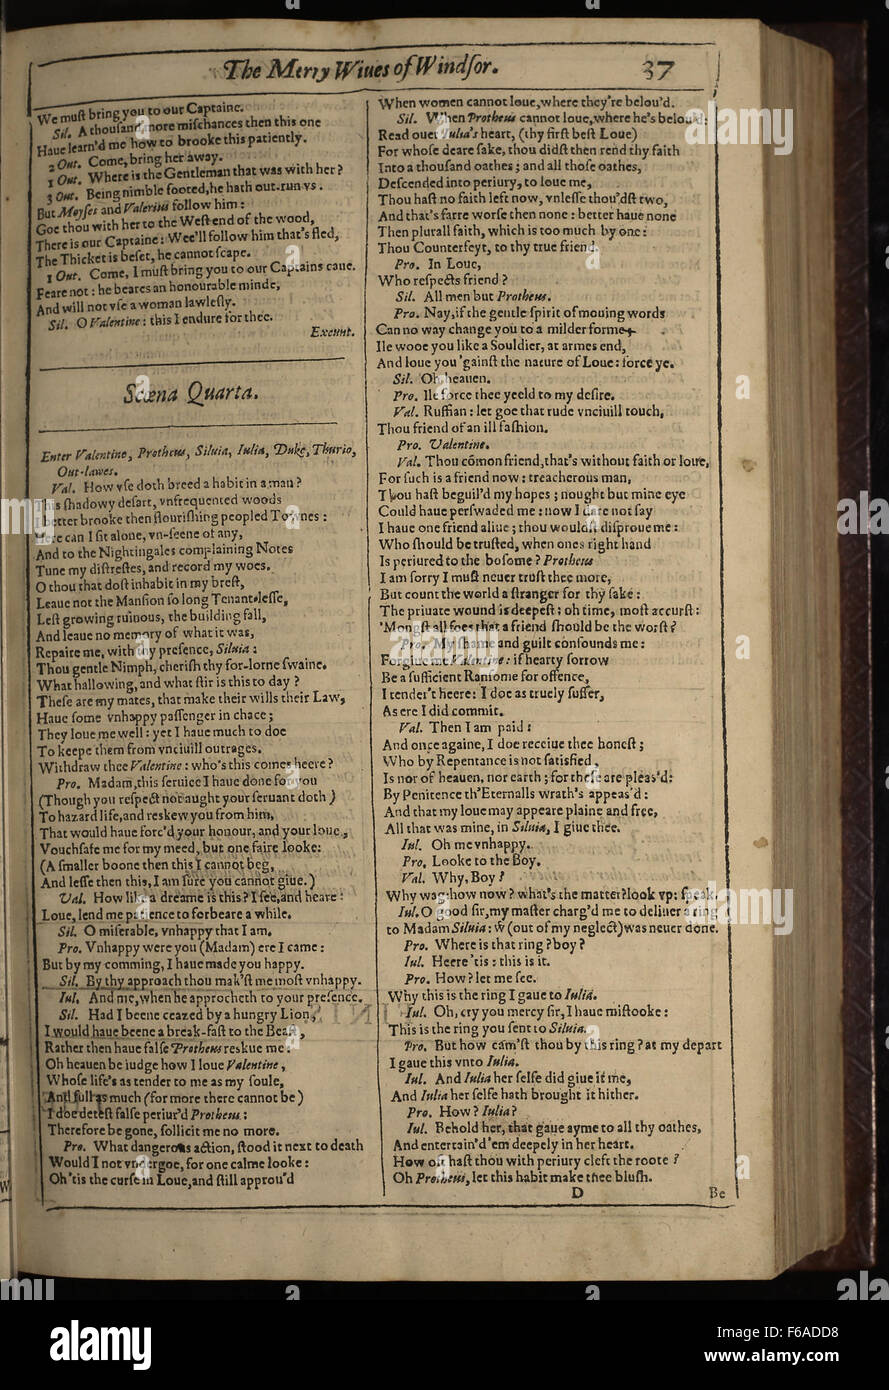 The Merry Wiues of Windſor. 37
We muſt bring you to our Captaine.
Sil. A thouſand more miſchances then this one
Haue learn'd me how to brooke this patiently.
2 Out. Come, bring her away.
1 Out. Where is the Gentleman that was with her?
3 Out. Being nimble footed, he hath out-run vs.
But Moyſes and Valerius follow him:
Goe thou with her to the Weſt end of the wood,
There is our Captaine: Wee'll follow him that's fled,
The Thicket is beſet, he cannot ſcape.
1 Out. Come, I muſt bring you to our Captains caue.
Feare not: he beares an honourable minde,
And will not vſe a woman lawleſly.
Sil. O Valentine: this I endure for thee.
Exeunt.
Scœna Quarta.
Enter Valentine, Protheus, Siluia, Iulia, Duke, Thurio,
Out-lawes.
Val. How vſe doth breed a habit in a man?
This ſhadowy deſart, vnfrequented woods
I better brooke then flouriſhing peopled Townes:
Here can I ſit alone, vn-ſeene of any,
And to the Nightingales complaining Notes
Tune my diſtreſſes, and record my woes.
O thou that doſt inhabit in my breſt,
Leaue not the Manſion ſo long Tenant-leſſe,
Leſt growing ruinous, the building fall,
And leaue no memory of what it was,
Repaire me, with thy preſence, Siluia:
Thou gentle Nimph, cheriſh thy for-lorne ſwaine.
What hallowing, and what ſtir is this to day?
Theſe are my mates, that make their wills their Law,
Haue ſome vnhappy paſſenger in chace;
They loue me well: yet I haue much to doe
To keepe them from vnciuill outrages.
Withdraw thee Valentine: who's this comes heere?
Pro. Madam, this ſeruice I haue done for you
(Though you reſpect not aught your ſeruant doth)
To hazard life, and reskew you from him,
That would haue forc'd your honour, and your loue,
Vouchſafe me for my meed, but one faire looke:
(A ſmaller boone then this I cannot beg,
And leſſe then this, I am ſure you cannot giue.)
Val. How like a dreame is this? I ſee, and heare:
Loue, lend me patience to forbeare a while.
Sil. O miſerable, vnhappy that I am.
Pro. Vnhappy were you (Madam) ere I came:
But by my comming, I haue made you happy.
Sil. By thy approach thou mak'ſt me moſt vnhappy.
Iul. And me, when he approcheth to your preſence.
Sil. Had I beene ceazed by a hungry Lion,
I would haue beene a break-faſt to the Beaſt,
Rather then haue falſe Protheus reskue me:
Oh heauen be iudge how I loue Valentine,
Whoſe life's as tender to me as my ſoule,
And full as much (for more there cannot be)
I doe deteſt falſe periur'd Protheus:
Therefore be gone, ſollicit me no more.
Pro. What dangerous action, ſtood it next to death
Would I not vndergoe, for one calme looke:
Oh 'tis the curſe in Loue, and ſtill approu'd
When women cannot loue, where they're belou'd.
Sil. When Protheus cannot loue, where he's belou'd:
Read ouer Iulia's heart, (thy firſt beſt Loue)
For whoſe deare ſake, thou didſt then rend thy faith
Into a thouſand oathes; and all thoſe oathes,
Deſcended into periury, to loue me,
Thou haſt no faith left now, vnleſſe thou'dſt two,
And that's farre worſe then none: better haue none
Then plurall faith, which is too much by one:
Thou Counterfeyt, to thy true friend.
Pro. In Loue,
Who reſpects friend?
Sil. All men but Protheus.
Pro. Nay, if the gentle ſpirit of mouing words
Can no way change you to a milder forme
Ile wooe you like a Souldier, at armes end,
And loue you 'gainſt the nature of Loue: force ye.
Sil. Oh heauen.
Pro. Ile force thee yeeld to my deſire.
Val. Ruffian: let goe that rude vnciuill touch,
Thou friend of an ill faſhion.
Pro. Valentine.
Val. Thou cõmon friend, that's without faith or loue,
For ſuch is a friend now: treacherous man,
Thou haſt beguil'd my hopes; nought but mine eye
Could haue perſwaded me: now I dare not ſay
I haue one friend aliue; thou wouldſt diſproue me:
Who ſhould be truſted, when ones right hand
Is periured to the boſome? Protheus
I am ſorry I muſt neuer truſt thee more,
But count the world a ſtranger for thy ſake:
The priuate wound is deepeſt: oh time, moſt accurſt:
'Mongſt all foes that a friend ſhould be the worſt?
Pro. My ſhame and guilt confounds me:
Forgiue me Valentine: if hearty ſorrow
Be a ſufficient Ranſome for offence,
I tender't heere: I doe as truely ſuffer,
As ere I did commit.
Val. Then I am paid:
And once againe, I doe receiue thee honeſt;
Who by Repentance is not ſatisfied,
Is nor of heauen, nor earth; for theſe are pleas'd:
By Penitence th'Eternalls wrath's appeas'd:
And that my loue may appeare plaine and free,
All that was mine, in Siluia, I giue thee.
Iul. Oh me vnhappy.
Pro. Looke to the Boy.
Val. Why, Boy?
Why wag: how now? what's the matter? look vp: ſpeak.
Iul. O good ſir, my maſter charg'd me to deliuer a ring
to Madam Siluia: ẇ (out of my neglect) was neuer done.
Pro. Where is that ring? boy?
Iul. Heere 'tis: this is it.
Pro. How? let me ſee.
Why this is the ring I gaue to Iulia.
Iul. Oh, cry you mercy ſir, I haue miſtooke:
This is the ring you ſent to Siluia.
Pro. But how cam'ſt thou by this ring? at my depart
I gaue this vnto Iulia.
Iul. And Iulia her ſelfe did giue it me,
And Iulia her ſelfe hath brought it hither.
Pro. How? Iulia?
Iul. Behold her, that gaue ayme to all thy oathes,
And entertain'd 'em deepely in her heart.
How oft haſt thou with periury cleft the roote?
Oh Protheus, let this habit make thee bluſh.
D Be
alamy
Image ID: F6ADD8
www.alamy.com